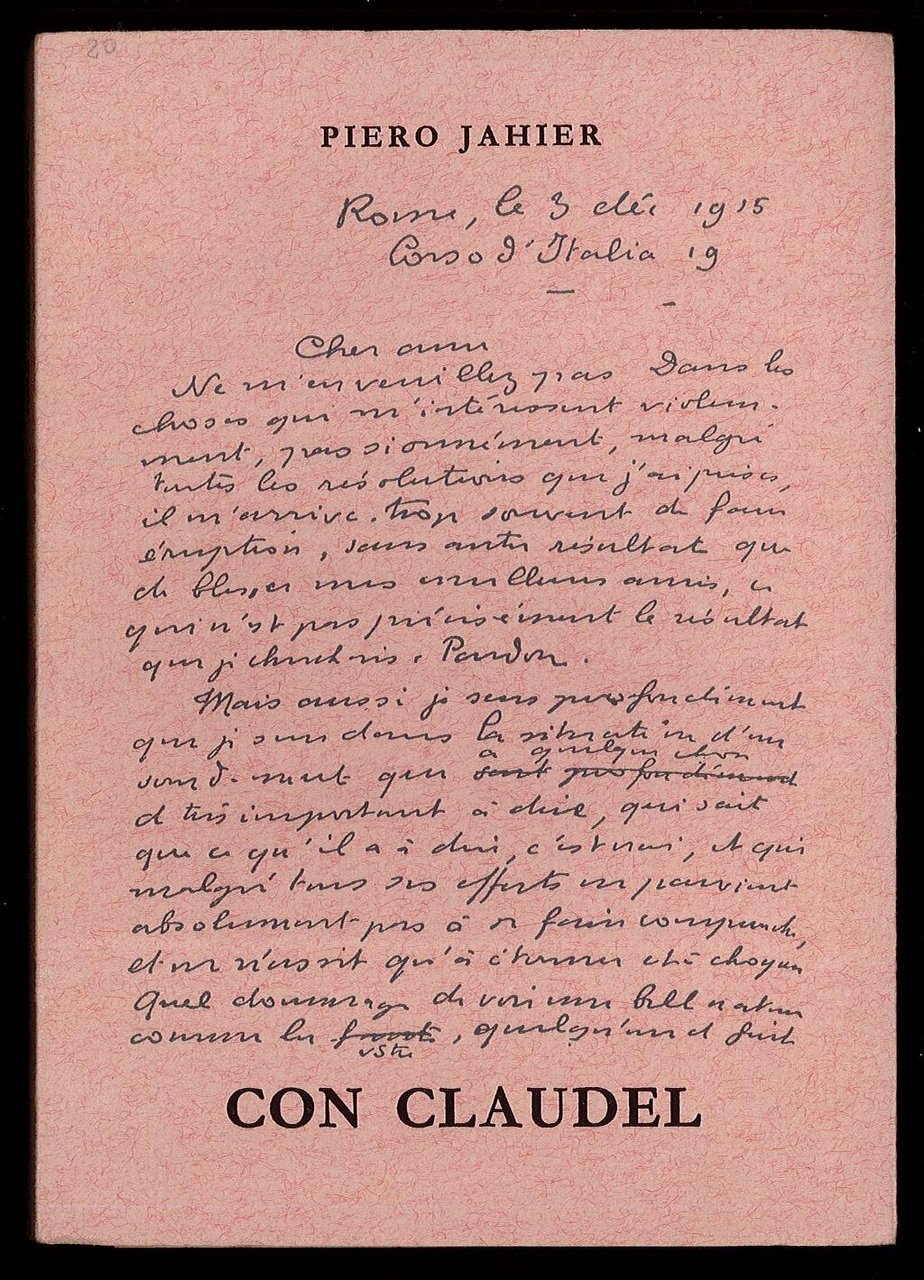 20
PIERO JAHIER
Rome, le 3 déc 1915
Corso d'Italia 19
Cher ami
Ne m'en veuillez pas Dans les
choses qui m'intéressent violem-
ment, passionnément, malgré
toutes les résolutions que j'ai prises,
il m'arrive trop souvent de faire
éruption, sans autre résultat que
de blesser mes meilleurs amis, ce
qui n'est pas précisément le résultat
que je cherchais. Pardon.
Mais aussi je sens profondément
que je suis dans la situation d'un
sourd-muet qui
a quelque chose
sent profondément
de très important à dire, qui sait
que ce qu'il a à dire, c'est vrai, et qui
malgré tous ses efforts ne parvient
absolument pas à se faire comprendre,
et ne réussit qu'à étonner et à choquer
Quel dommage de voir une belle nature
comme la
vôtre, quelqu'un et fait
CON CLAUDEL